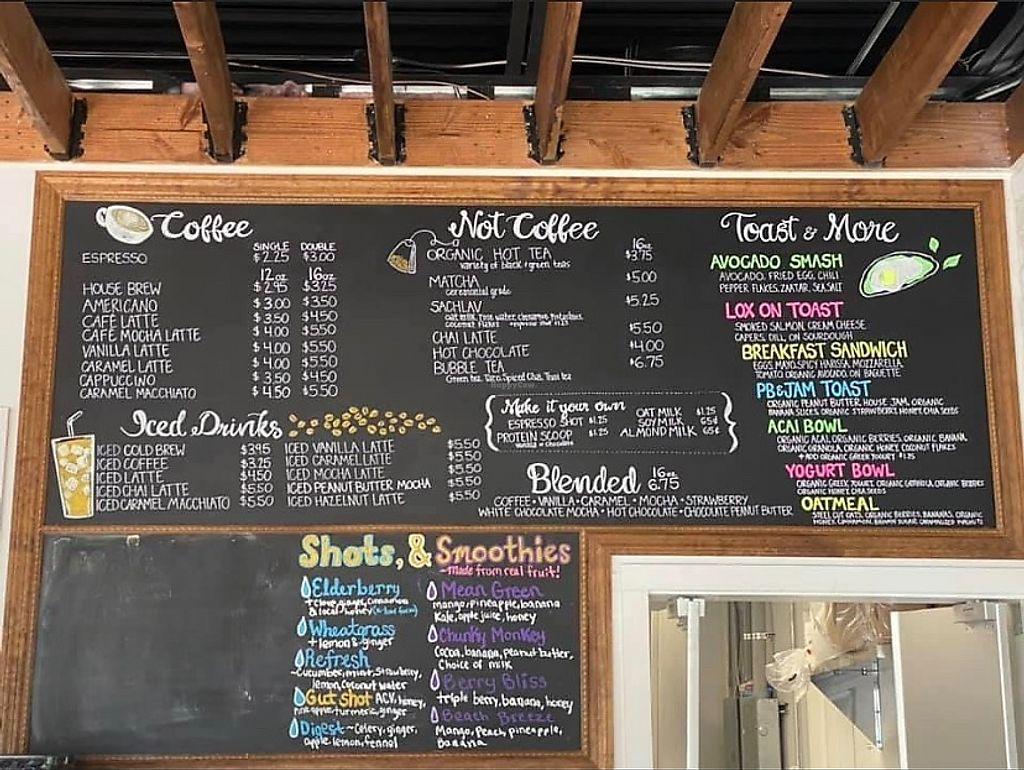 Coffee
SINGLE DOUBLE
ESPRESSO $2.25 $3.00
12oz 16oz
HOUSE BREW $2.95 $3.25
AMERICANO $3.00 $3.50
CAFE LATTE $3.50 $4.50
CAFE MOCHA LATTE $4.00 $5.50
VANILLA LATTE $4.00 $5.50
CARAMEL LATTE $4.00 $5.50
CAPPUCCINO $3.50 $4.50
CARAMEL MACCHIATO $4.50 $5.50
Iced Drinks
ICED COLD BREW $3.95
ICED COFFEE $3.25
ICED LATTE $4.50
ICED CHAI LATTE $5.50
ICED CARAMEL MACCHIATO $5.50
ICED VANILLA LATTE $5.50
ICED CARAMEL LATTE $5.50
ICED MOCHA LATTE $5.50
ICED PEANUT BUTTER MOCHA $5.50
ICED HAZELNUT LATTE $5.50
Not Coffee
16oz
ORGANIC HOT TEA $3.75
variety of black & green teas
MATCHA $5.00
ceremonial grade
SACHLAV $5.25
oat milk, rose water, cinnamon, pistachios,
coconut flakes
CHAI LATTE $5.50
HOT CHOCOLATE $4.00
BUBBLE TEA $6.75
Green tea, Taro, Spiced Chai, Thai tea
HappyCow
Make it your own
ESPRESSO SHOT $1.25
PROTEIN SCOOP $1.25
OAT MILK $1.25
SOY MILK 65¢
ALMOND MILK 65¢
Blended 16oz 6.75
COFFEE • VANILLA • CARAMEL • MOCHA • STRAWBERRY
WHITE CHOCOLATE MOCHA • HOT CHOCOLATE • CHOCOLATE PEANUT BUTTER
Toast & More
AVOCADO SMASH
AVOCADO, FRIED EGG, CHILI
PEPPER FLAKES, ZAATAR, SEA SALT
LOX ON TOAST
SMOKED SALMON, CREAM CHEESE
CAPERS, DILL, ON SOURDOUGH
BREAKFAST SANDWICH
EGGS, MAYO, SPICY HARISSA, MOZZARELLA,
TOMATO, ORGANIC AVOCADO, ON BAGUETTE
PB & JAM TOAST
ORGANIC PEANUT BUTTER, HOUSE JAM, ORGANIC
BANANA SLICES, ORGANIC STRAWBERRY, HONEY, CHIA SEEDS
ACAI BOWL
ORGANIC ACAI, ORGANIC BERRIES, ORGANIC BANANA,
ORGANIC GRANOLA, ORGANIC HONEY, COCONUT FLAKES
+ ADD ORGANIC GREEK YOGURT $1.25
YOGURT BOWL
ORGANIC GREEK YOGURT, ORGANIC GRANOLA, ORGANIC BERRIES
ORGANIC HONEY, CHIA SEEDS
OATMEAL
STEEL CUT OATS, ORGANIC BERRIES, BANANAS, ORGANIC
HONEY, CINNAMON, BROWN SUGAR, CARAMELIZED WALNUTS
Shots, & Smoothies
~made from real fruit!
Elderberry
+ clove, ginger, cinnamon
& local honey
Wheatgrass
+ lemon & ginger
Refresh
~cucumber, mint, strawberry,
lemon, coconut water
Gut shot ACV, honey,
pineapple, turmeric, ginger
Digest ~ celery, ginger,
apple, lemon, fennel
Mean Green
mango, pineapple, banana
Kale, apple juice, honey
Chunky Monkey
Cocoa, banana, peanut butter,
Choice of milk
Berry Bliss
triple berry, banana, honey
Beach Breeze
Mango, Peach, pineapple,
Banana